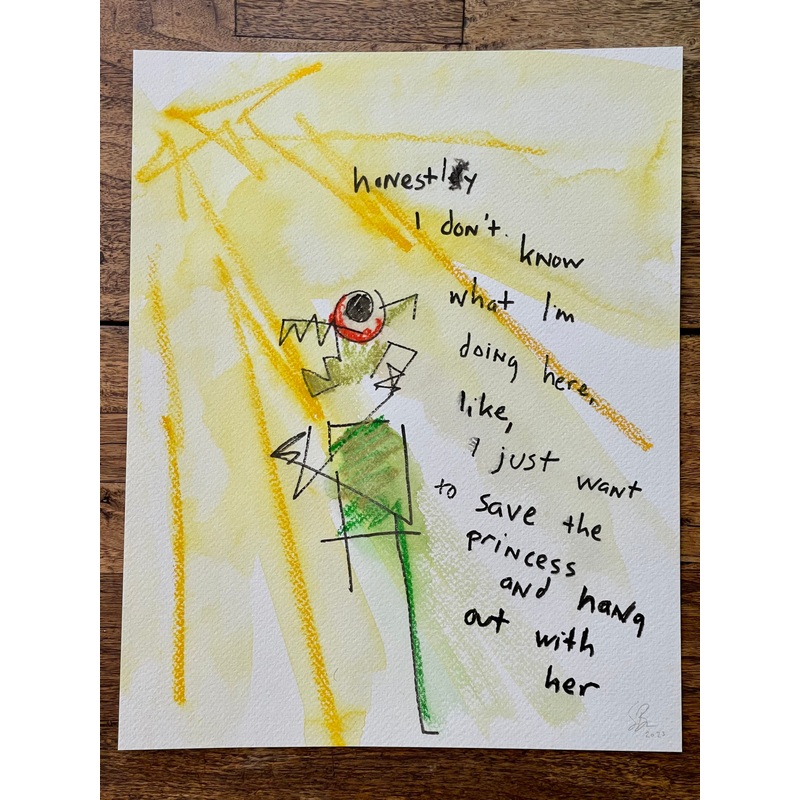 honestly
I don't
know
what I'm
doing here.
like,
I just want
to save the
princess
and hang
out with
her
2022